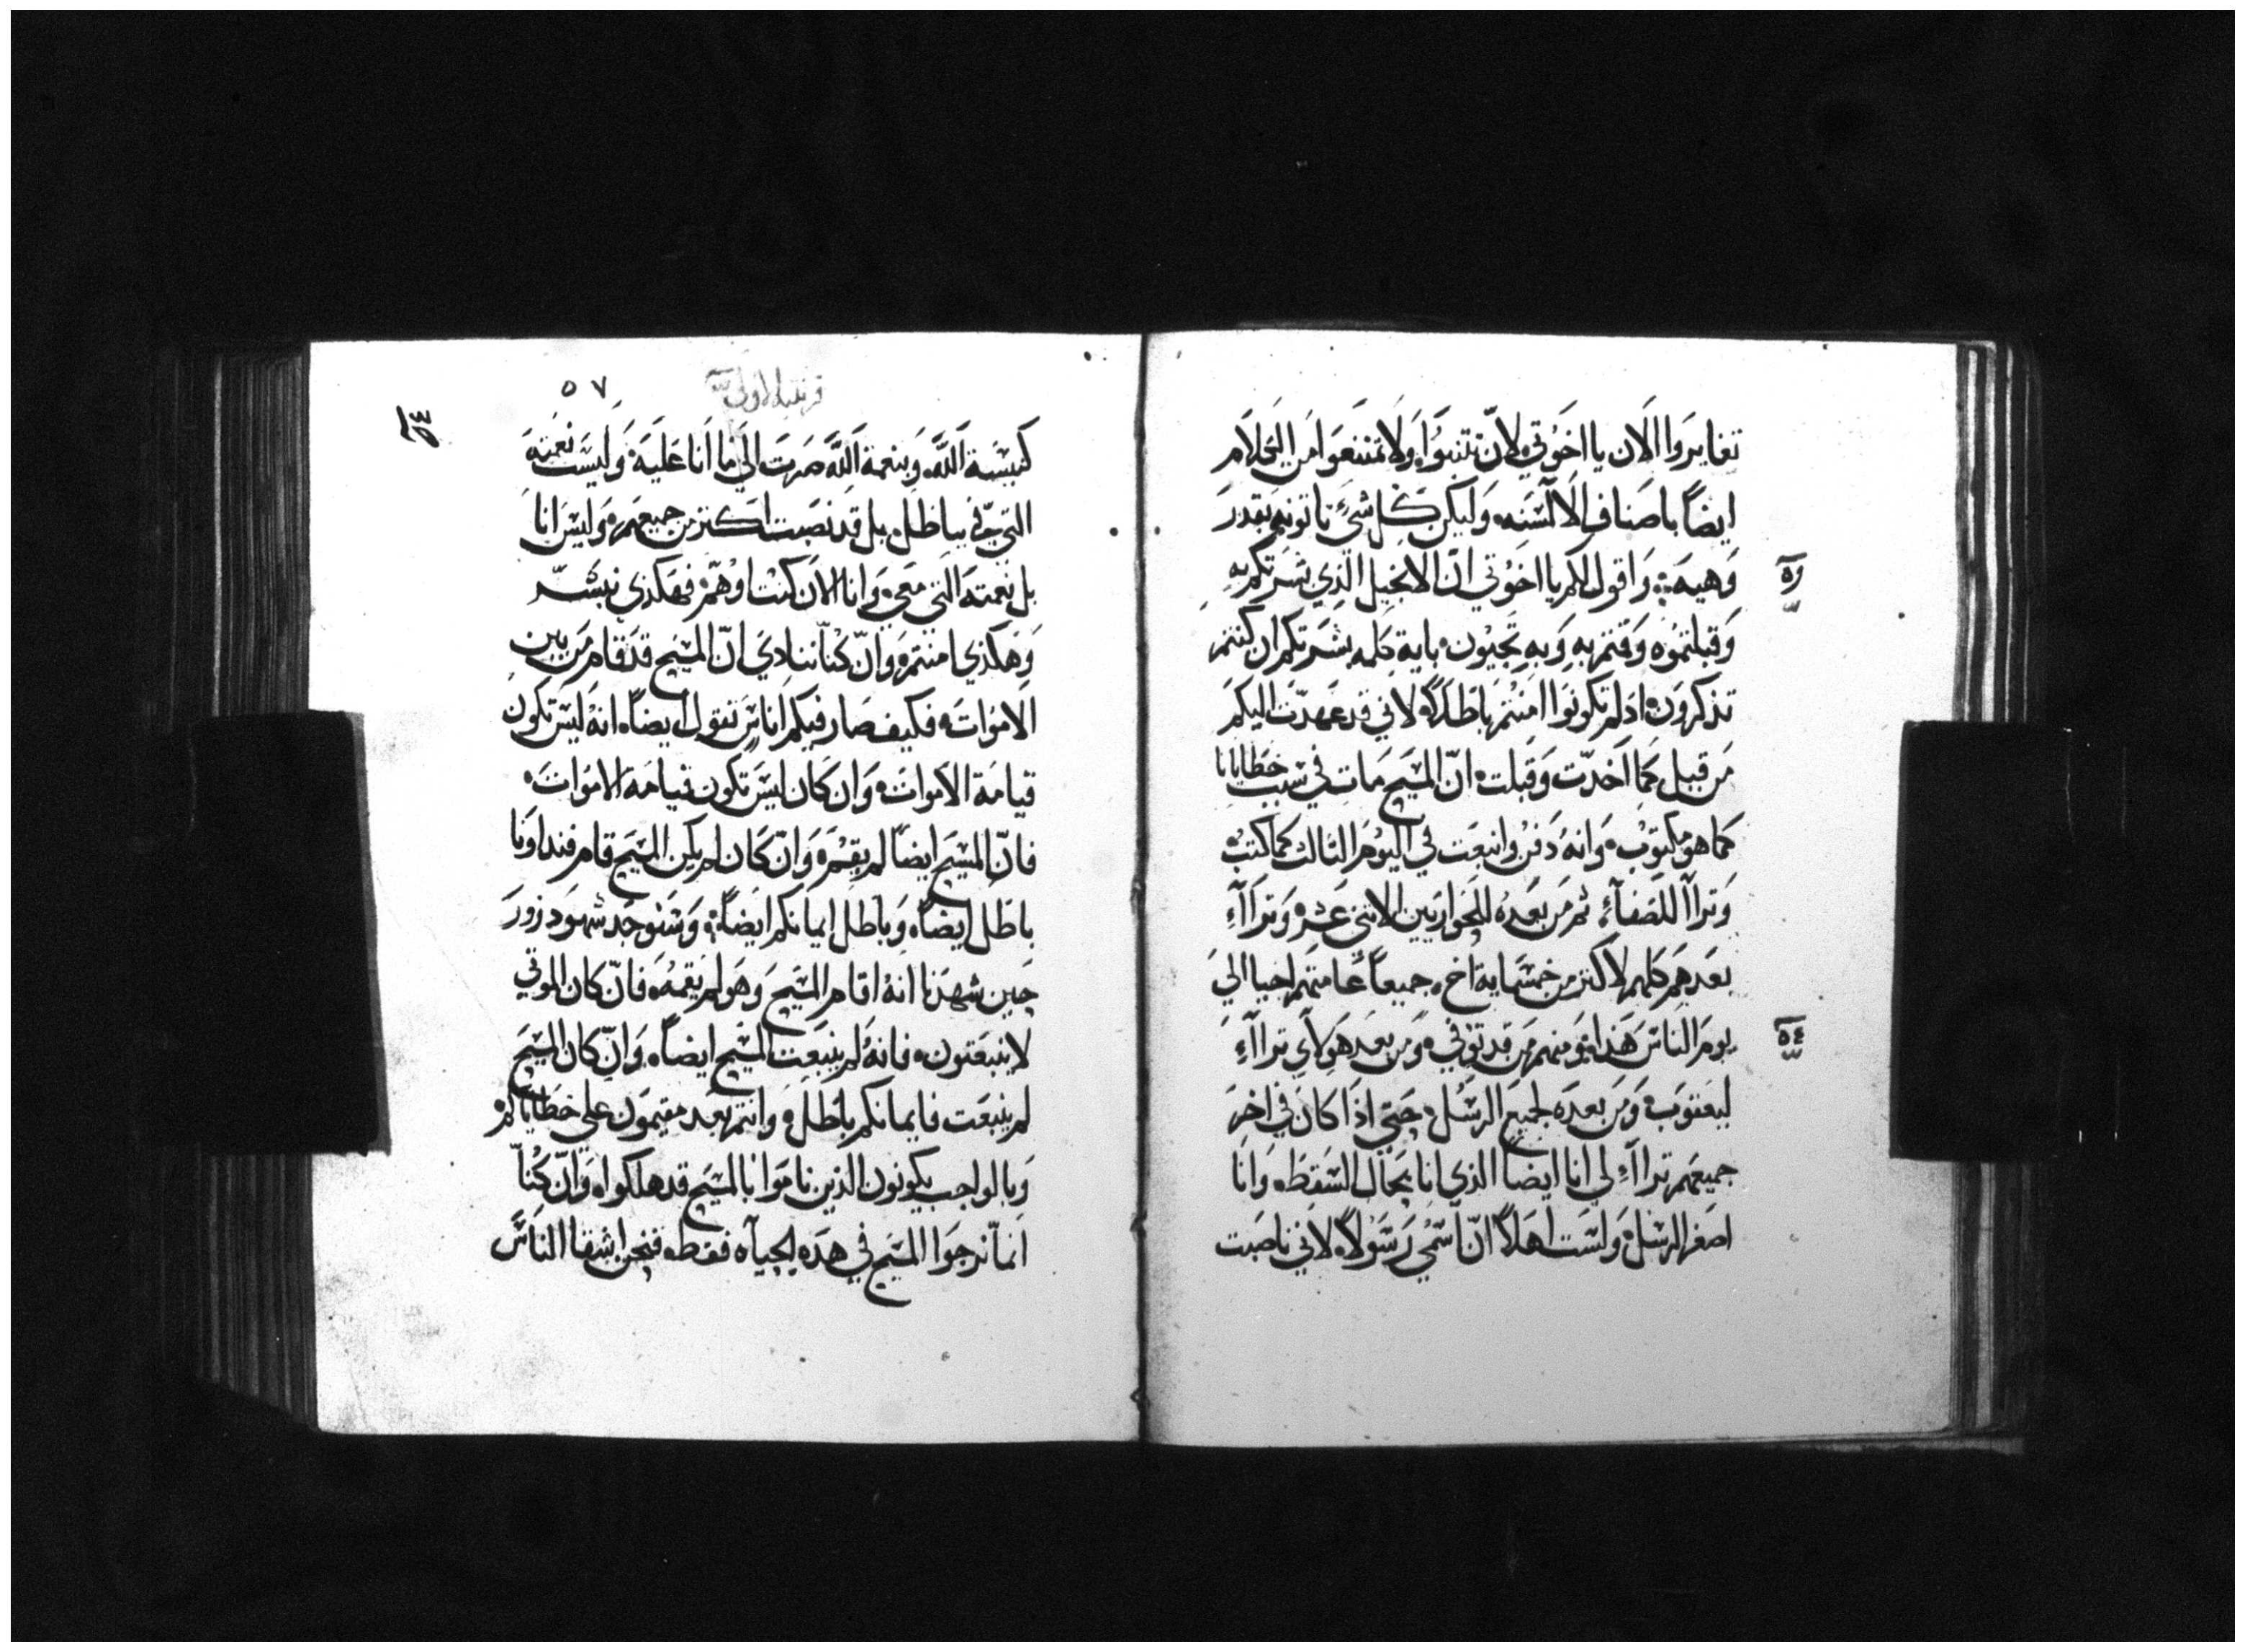 تغايروا الان يا اخوتي لانّ تتنبوا ولا تمتنعوا من الكلام
ايضاً باصناف الالسنه وليكن كل شيء تاتونه بقدر
وهيه ۞ واقول لكم يا اخوتي انّ الانجيل الذي بشرتكم به
وقبلتموه وقمتم به وبه تحيون باية كلمه بشرتكم ان كنتم
تذكرون اذ لم تكونوا امنتم باطلاً لاني قد عهدّت اليكم
من قبل كما اخدّت وقبلت انّ المسيح مات في سبب خطايانا
كما هو مكتوب وانه دفن وانبعت في اليوم التالت كما كتب
وترااا للصفاء ثم من بعده للحواريين الاتني عشر وترااء
بعدهم كلهم لاكتر من خمسماية اخ جميعاً عامتهم احيا الي
يوم الناس هذا ومنهم من قد توفي ومن بعد هولاي ترااء
ليعقوب ومن بعده لجميع الرسل حتي اذا كان في اخر
جميعهم ترااء لي انا ايضا الذي انا بحال السقط وانا
اصغر الرسل ولست اهلاً انّ اسمي رسولاً لاني ناصبت
٥٣
٥٤
قرنتيه الاولي
٥٧
كنيسة الله وبنعمة الله صرت الي ما انا عليه وليست نعمته
التي فيّ بباطل بل قد نصبت اكتر من جميعهم وليس انا
بل نعمته التي معي وانا الان كنت او همّ فهكذي نبشّر
وهكذي امنتم وانّ كنّا ننادي انّ المسيح قد قام من بين
الاموات فكيف صار فيكم اناس تقول ايضاً انه ليس تكون
قيامة الاموات وان كان ليس تكون قيامة الاموات
فانّ المسيح ايضاً لم يقم وانّ كان لم يكن المسيح قام فنداونا
باطل ايضاً وباطل ايمانكم ايضاً وسنوجد شهود زور
حين شهدنا انه اقام المسيح وهو لم يقمه فانّ كان الموتي
لا ينبعتون فانه لم ينبعت المسيح ايضاً وانّ كان المسيح
لم ينبعت فايمانكم باطل وانتم بعد مقيمون علي خطاياكم
وبالواجب يكونون الذين ناموا بالمسيح قد هلكوا وانّ كنّا
انما نرجوا المسيح في هده الحياه فقط فنحن اشقا الناس